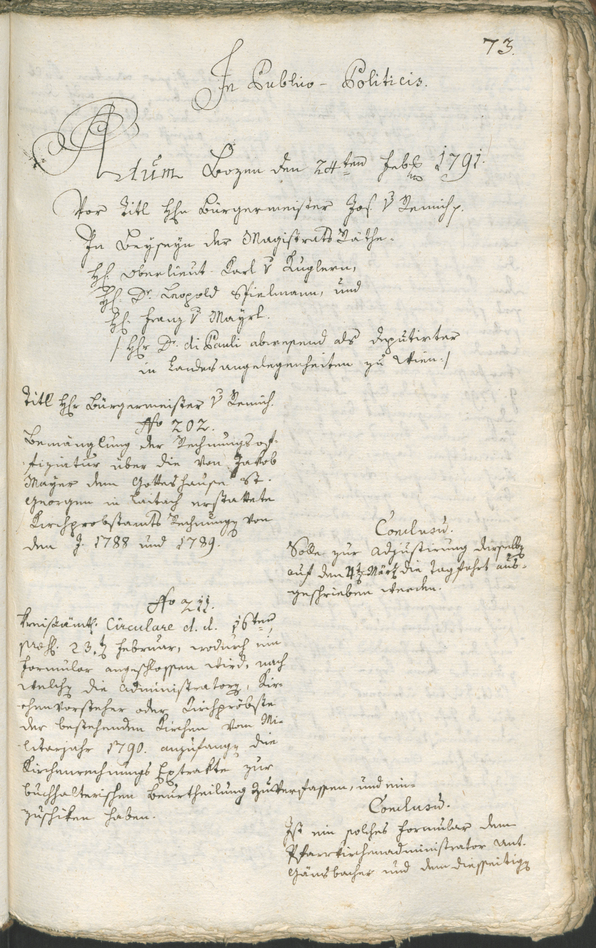 73.
In Publico-Politicis.
Actum Bozen den 24ten Febr 1791.
Vor Titl Hhn Bürgermeister Jos. v Remich p.
In Beyseyn der MagistratsRäthe.
Hh. Oberlieut. Karl v Kuglern,
Hh. Dr. Leopold Spielmann, und
Hh. Franz v Mayrl.
/: Hhr Dr. di Pauli abwesend als deputirter
in Landesangelegenheiten zu Wien :/
Titl Hhr Bürgermeister v Remich.
No 202.
Bemänglung der Rechnungsof-
fiziatur über die von Jakob
Mayer dem Gotteshause St.
Georgen in Laitach erstattete
Kirchprobstamts Rechnung von
den J. 1788 und 1789.
Conclusum.
Solle zur Adjustirung derselben
auf den 4t März die Tagfahrt aus-
geschrieben werden.
No 211.
Kreisämtl. Circulare d. d. 15ten
praes. 23t Februar, wodurch ein
Formular angeschlossen wird, nach
welchen die Administratorn, Kir-
chenvorsteher oder Kirchpröbste
der bestehenden Kirchen vom Mi-
litarjahr 1790. anzufangen die
Kirchenrechnungs Extrakte zur
buchhalterischen Beurtheilung zu verfassen, und ein-
zuschiken haben.
Conclusum.
Ist ein solches Formular dem
Pfarrkirchenadministrator Ant.
Gänsbacher und dem diesseitigen